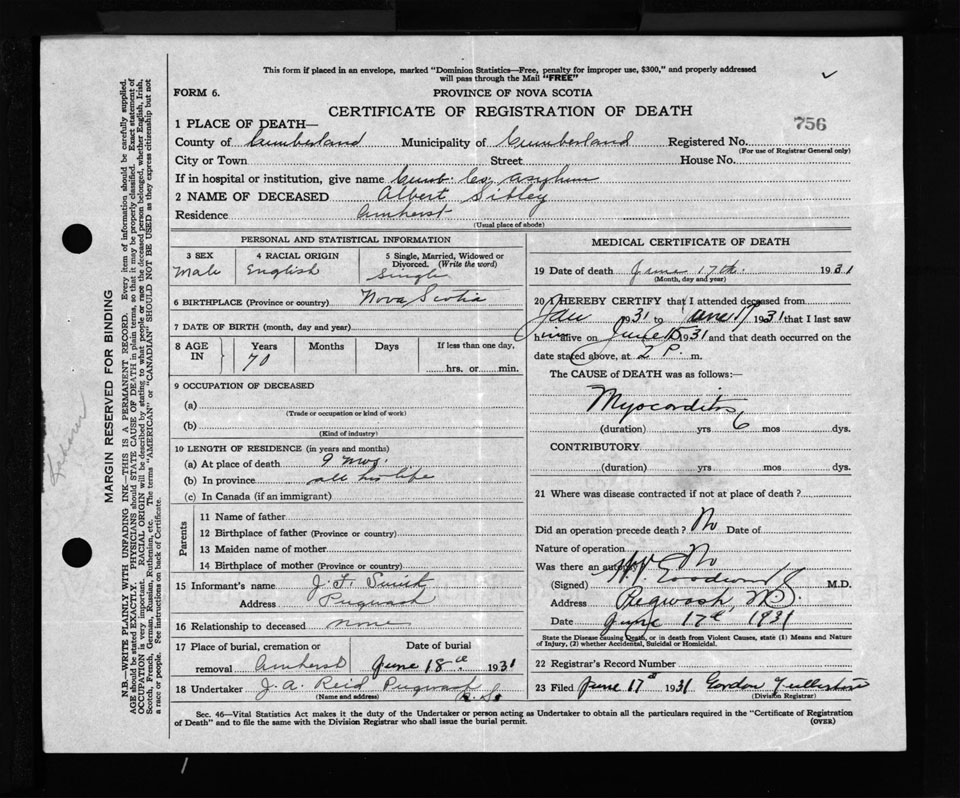 This form if placed in an envelope, marked "Dominion Statistics—Free, penalty for improper use, $300," and properly addressed
will pass through the Mail "FREE"
FORM 6.
PROVINCE OF NOVA SCOTIA
CERTIFICATE OF REGISTRATION OF DEATH
756
1 PLACE OF DEATH—
County of Cumberland Municipality of Cumberland Registered No.
(For use of Registrar General only)
City or Town Street House No.
If in hospital or institution, give name Cumb. Co. Asylum
2 NAME OF DECEASED Albert Sibley
Residence Amherst
(Usual place of abode)
PERSONAL AND STATISTICAL INFORMATION
3 SEX 4 RACIAL ORIGIN 5 Single, Married, Widowed or
Divorced. (Write the word)
Male English Single
6 BIRTHPLACE (Province or country) Nova Scotia
7 DATE OF BIRTH (month, day and year)
8 AGE IN Years Months Days If less than one day,
70 hrs. or min.
9 OCCUPATION OF DECEASED
(a)
(Trade or occupation or kind of work)
(b)
(Kind of industry)
10 LENGTH OF RESIDENCE (in years and months)
(a) At place of death 9 mos.
(b) In province all his life
(c) In Canada (if an immigrant)
Parents
11 Name of father
12 Birthplace of father (Province or country)
13 Maiden name of mother
14 Birthplace of mother (Province or country)
15 Informant's name J. F.
Address Pugwash
16 Relationship to deceased none
17 Place of burial, cremation or Date of burial
removal Amherst June 18th 1931
18 Undertaker J. A. Reid Pugwash N.S.
(Name and address)
MEDICAL CERTIFICATE OF DEATH
19 Date of death June 17th 1931
(Month, day and year)
20 I HEREBY CERTIFY that I attended deceased from
Jan 1931 to June 17 1931 that I last saw
him alive on June 15 1931 and that death occurred on the
date stated above, at 2 P. m.
The CAUSE of DEATH was as follows:—
Myocarditis
(duration) yrs 6 mos dys.
CONTRIBUTORY
(duration) yrs mos dys.
21 Where was disease contracted if not at place of death?
Did an operation precede death? No Date of
Nature of operation
Was there an autopsy No
(Signed) Goodwin M.D.
Address Pugwash, N.S.
Date June 17th, 1931
State the Disease causing Death, or in death from Violent Causes, state (1) Means and Nature
of Injury, (2) whether Accidental, Suicidal or Homicidal.
22 Registrar's Record Number
23 Filed June 17th 1931 Gordon
(Division Registrar)
Sec. 46—Vital Statistics Act makes it the duty of the Undertaker or person acting as Undertaker to obtain all the particulars required in the "Certificate of Registration
of Death" and to file the same with the Division Registrar who shall issue the burial permit.
(OVER)
MARGIN RESERVED FOR BINDING
N.B.—WRITE PLAINLY WITH UNFADING INK—THIS IS A PERMANENT RECORD. Every item of information should be carefully supplied.
AGE should be stated EXACTLY. PHYSICIANS should STATE CAUSE OF DEATH in plain terms, so that it may be properly classified. Exact statement of
OCCUPATION is very important. RACIAL ORIGIN will be described by stating to what people or race the deceased person belonged, whether English, Irish,
Scotch, French, German, Russian, Ruthenian, etc. The terms "AMERICAN" or "CANADIAN" SHOULD NOT BE USED as they express citizenship but not
a race or people. See instructions on back of Certificate.